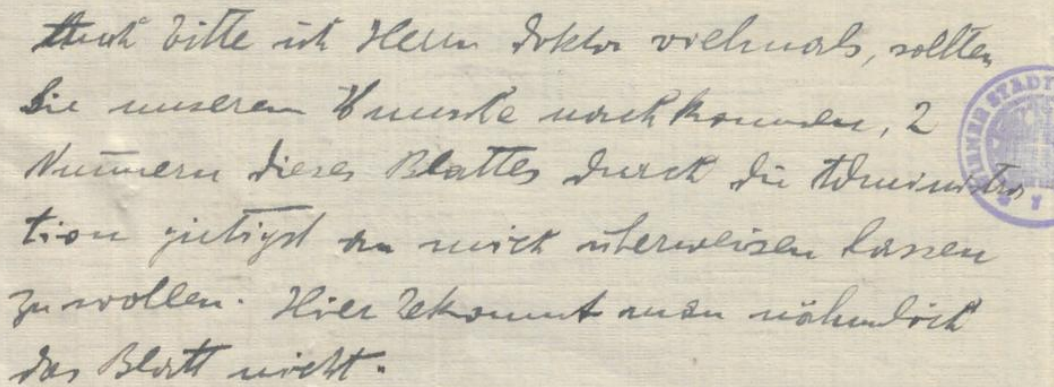 Auch bitte ich Herrn Doktor vielmals, sollten
Sie unserem Wunsche nachkommen, 2
Nummern dieses Blattes durch die Administra
tion gütigst an mich überweisen lassen
zu wollen. Hier bekommt man nähmlich
das Blatt nicht.